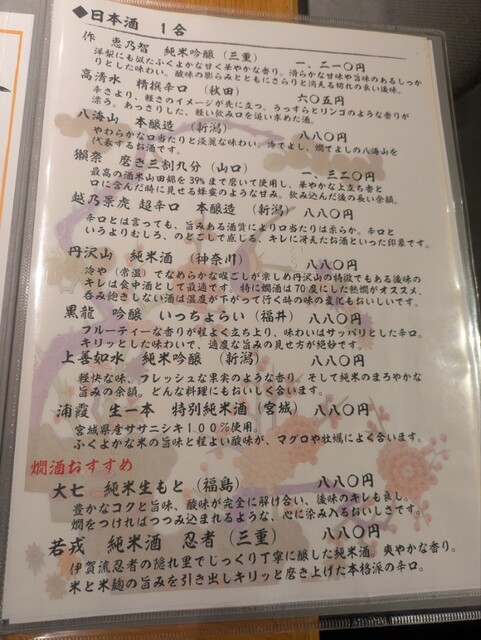 ◆日本酒 1合
作 恵乃智 純米吟醸（三重） 一、二一〇円
洋梨にも似たふくよかな甘く華やかな香り。滑らかな甘味や旨味のあるしっか
りとした味わい。酸味の膨らみとともにさらりと消える切れの良い後味。
高清水 精撰辛口（秋田） 六〇五円
辛さより、軽さのイメージが先に立つ。うっすらとリンゴのような香りが
漂う。あっさりした、軽い飲み口を追い求めた酒。
八海山 本醸造（新潟） 八八〇円
やわらかな口当たりと淡麗な味わい。冷でよし、燗でよしの八海山を
代表するお酒です。
獺祭 磨き三割九分（山口） 一、三二〇円
最高の酒米山田錦を39％まで磨いて使用し、華やかな上立ち香と
口に含んだ時に見せる蜂蜜のような甘み。飲み込んだ後の長い余韻。
越乃景虎 超辛口 本醸造（新潟） 八八〇円
辛口とは言っても、旨みある酒質により口当たりは柔らか。辛口と
いうよりむしろ、のどごしで感じる、キレに冴えたお酒といった印象です。
丹沢山 純米酒（神奈川） 八八〇円
冷や（常温）でなめらかな喉ごしが楽しめ丹沢山の特徴でもある後味の
キレは食中酒として最適です。特に燗酒は70度にした熱燗がオススメ。
呑み飽きしない酒は温度が下がって行く時の味の変化もおいしいです。
黒龍 吟醸 いっちょらい（福井） 八八〇円
フルーティーな香りが程よく立ち上り、味わいはサッパリとした辛口。
キリッとした味わいで、適度な旨みの見せ方が絶妙です。
上善如水 純米吟醸（新潟） 八八〇円
軽快な味、フレッシュな果実のような香り。そして純米のまろやかな
旨みの余韻。どんな料理にもおいしく合います。
浦霞 生一本 特別純米酒（宮城） 八八〇円
宮城県産ササニシキ100％使用。
ふくよかな米の旨味と程よい酸味が、マグロや牡蠣によく合います。
燗酒おすすめ
大七 純米生もと（福島） 八八〇円
豊かなコクと旨味、酸味が完全に解け合い、後味のキレも良し。
燗をつければつつみ込まれるような、心に染み入るおいしさです。
若戎 純米酒 忍者（三重） 八八〇円
伊賀流忍者の隠れ里でじっくり丁寧に醸した純米酒。爽やかな香り。
米と米麹の旨みを引き出しキリッと磨き上げた本格派の辛口。